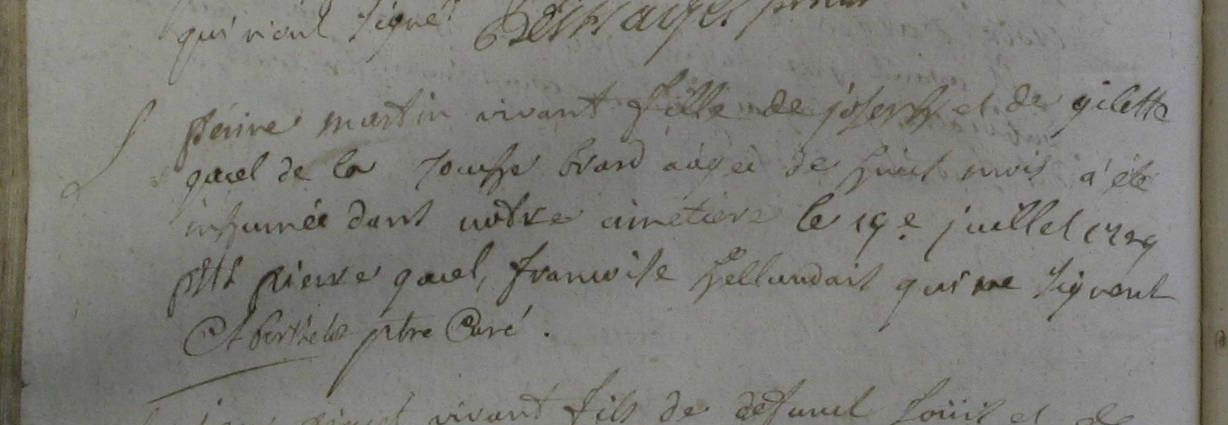 qui n'ont signé
perine martin vivant fille de joseph et de gilette
quel de la Touche brard aagée de huit mois a été
inhumée dans notre cimetiere le 19e juillet 1729
psts pierre quel, francoise hellandais qui ne signent
ptre Curé.
vivant fils de defunct Loüis et de